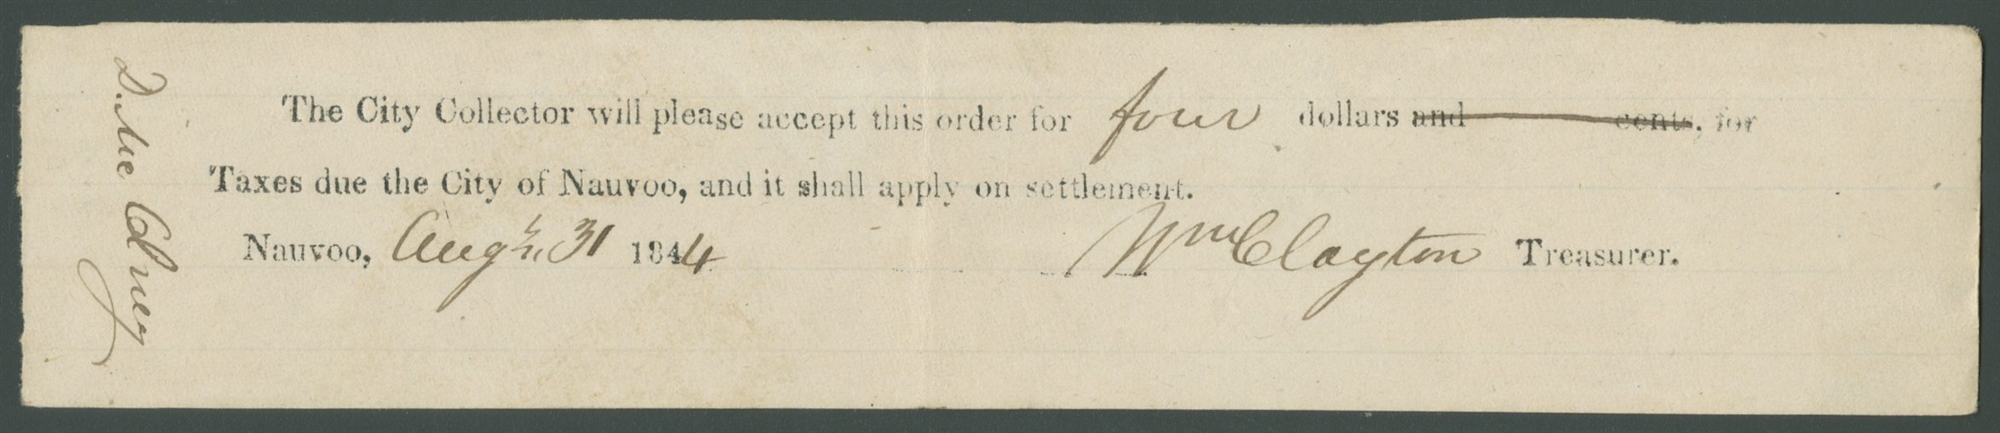 The City Collector will please accept this order for four dollars and cents, for
Taxes due the City of Nauvoo, and it shall apply on settlement.
Nauvoo, Augt. 31 1844 Wm Clayton Treasurer.